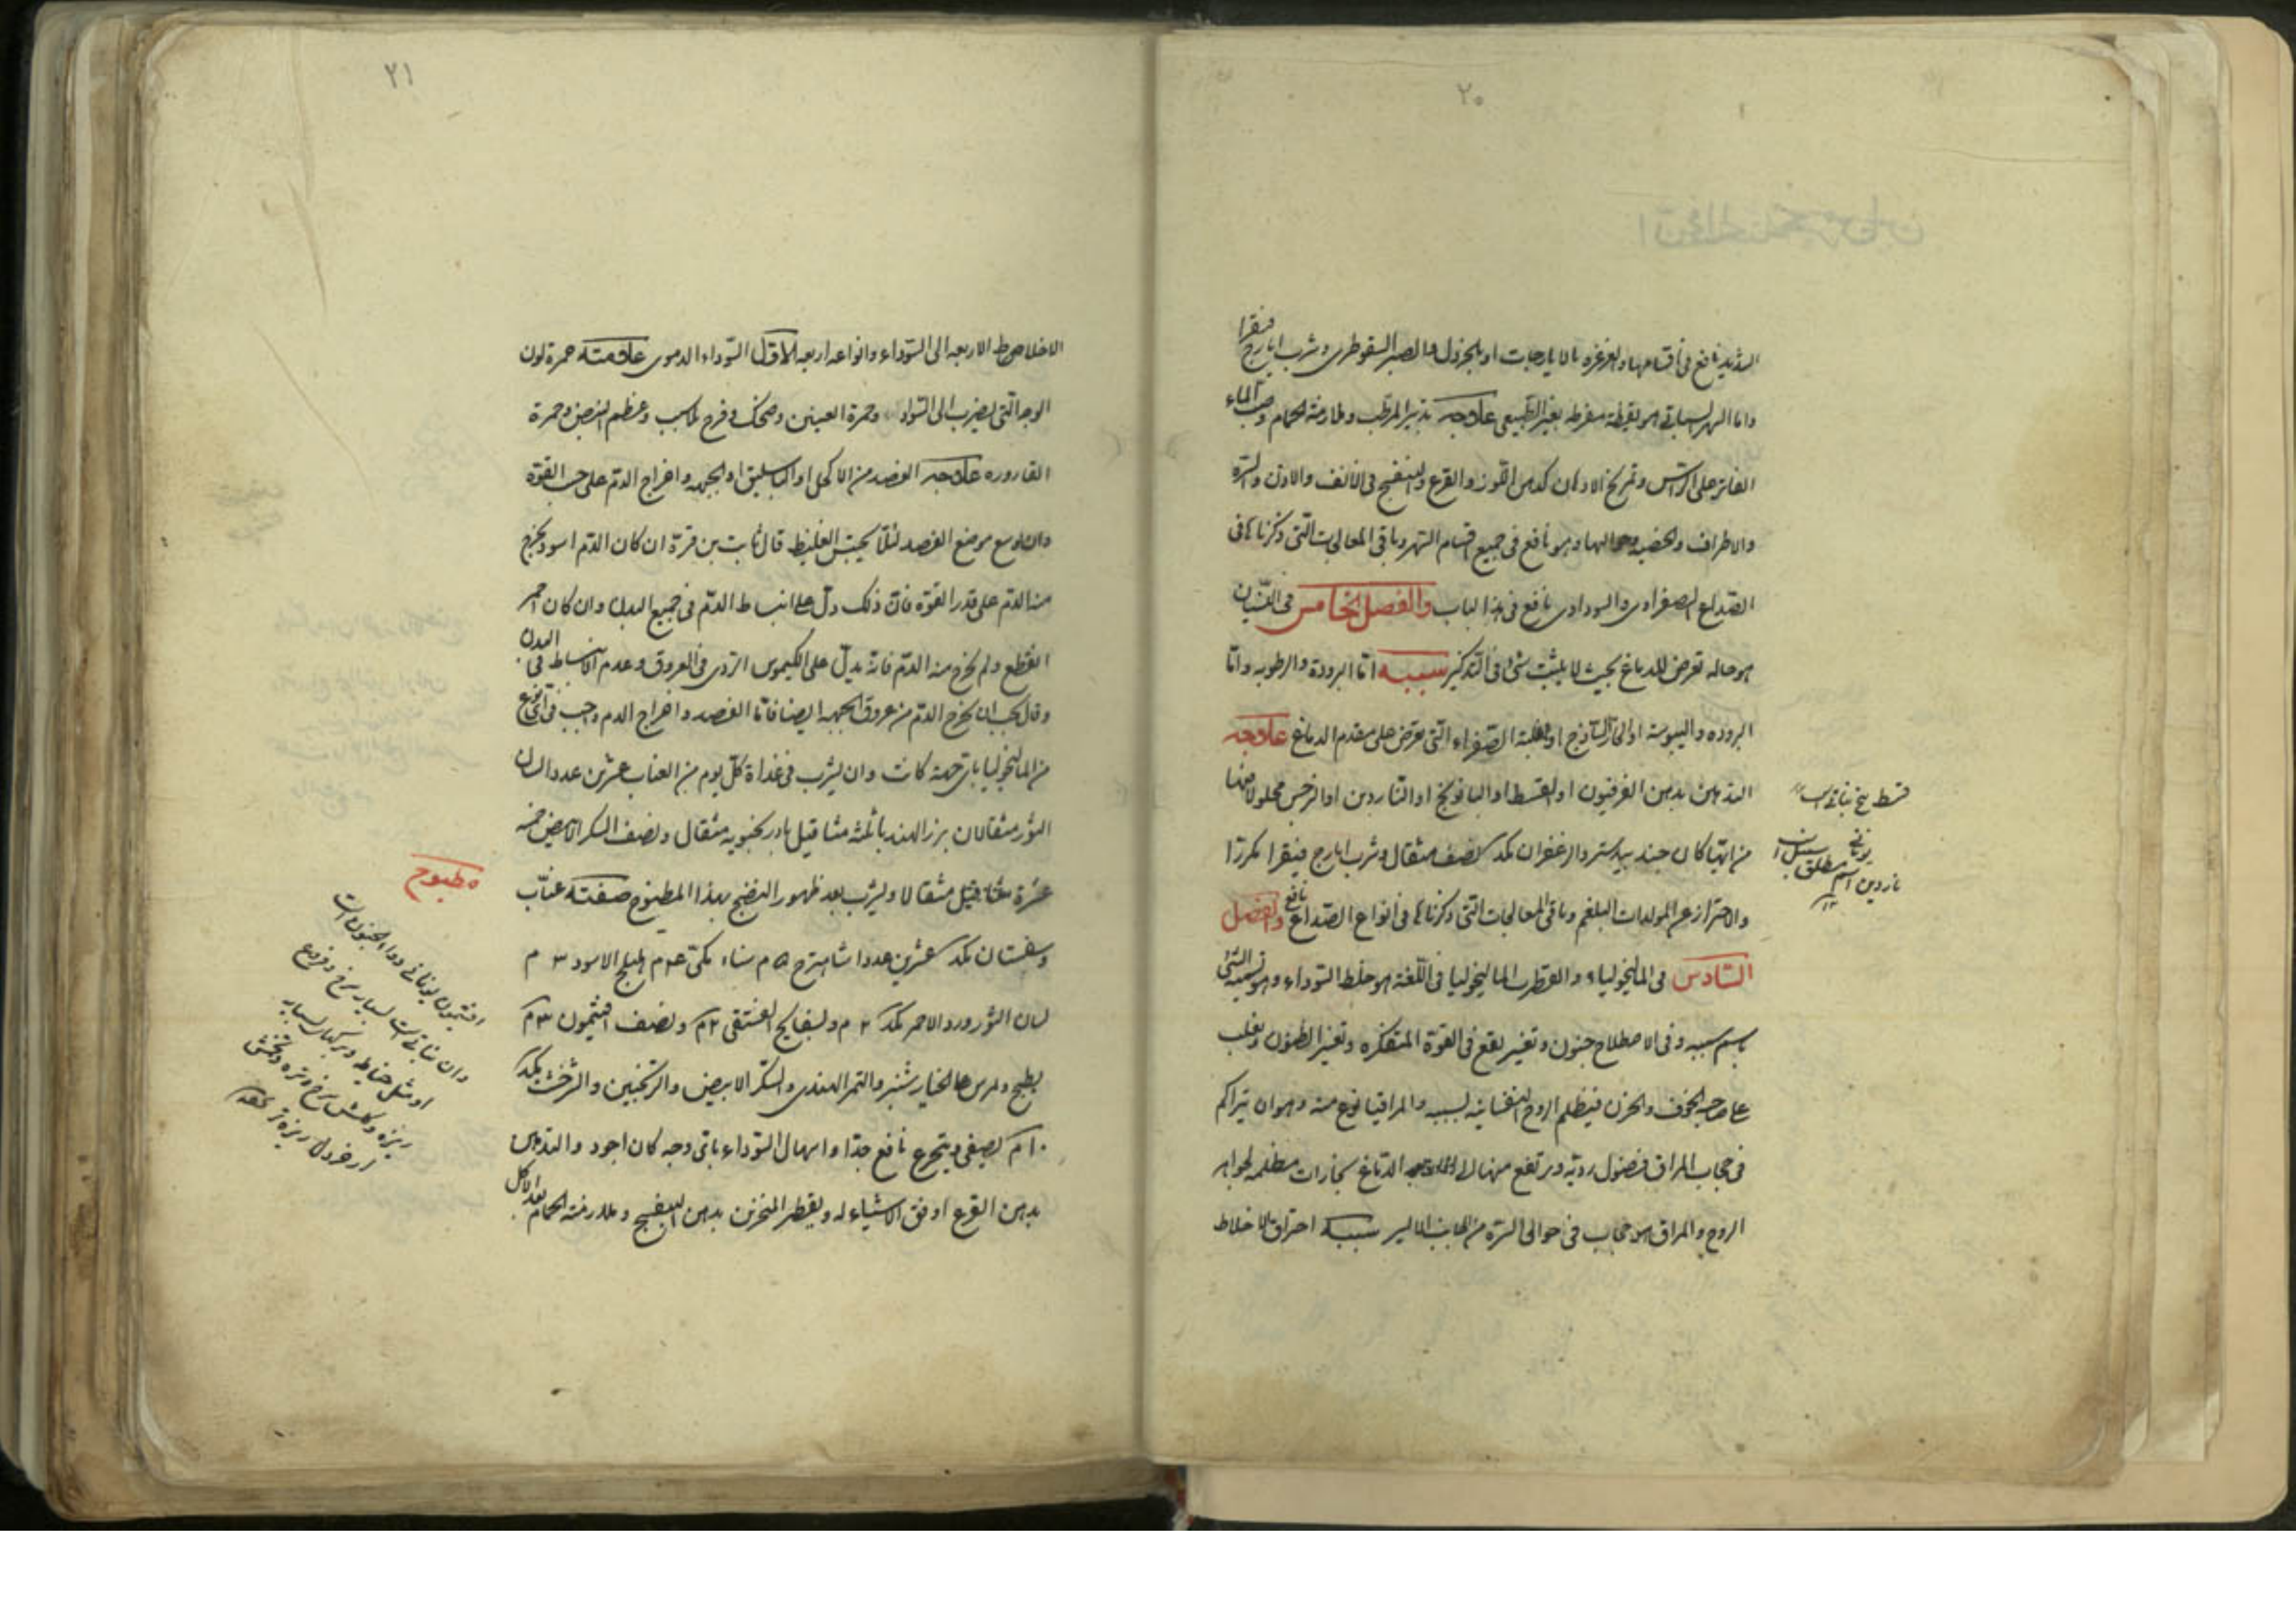 ٢٠
الشديد نافع فى اقسامها والغرغره بالايارجات او بالخردل والصبر السقوطرى وشرب ايارج فيقرا
واما السهر السباتى هو يقظة مفرطه بغير الطبيعى علاجه تدبير المرطب وملازمة الحمام وصب الماء
الفاتر على الراس وتمريخ الادهان كدهن اللوز والقرع والبنفسج فى الانف والاذن والسرة
والاطراف والخصيه وحواليها وهو نافع فى جميع اقسام السهر وباقى المعالجات التى ذكرناها فى
الصداع الصفراوى والسوداوى نافع فى هذا الباب والفصل الخامس فى النسيان
هو حاله تعرض للدماغ بحيث لا يثبت شئ فى التذكير سببه اما البرودة والرطوبه واما
البروده واليبوسة او الحار الساذج او لغلبة الصفراء التى تعرض على مقدم الدماغ علاجه
التدهين بدهن الفرفيون او القسط او البابونج او الناردين او النرجس محلولا فيها
من ايها كان جند بيدستر والزعفران مكد نصف مثقال وشرب ايارج فيقرا مكررا
والاحتراز عن المولدات البلغم وباقى المعالجات التى ذكرناها فى انواع الصداع نافع والفصل
السادس فى الماليخولياء والقطرب الماليخوليا فى اللغة هو خلط السوداء وهو تسمية الشئ
باسم سببه وفى الاصطلاح جنون وتغيير يقع فى القوة المتفكره وتغير الظنون ويغلب
على صاحبه الخوف والحزن فيظلم الروح النفسانيه بسببه والمراقيا نوع منه وهو ان يتراكم
فى حجاب المراق فضول ردية ويرتفع منها الى الدماغ بخارات مظلمه لجواهر
الروح والمراق هو حجاب فى حوالى السرة من الجانب الايسر سببه احتراق الاخلاط
قسط بيخ نباتى است
ناردين اسم مطلق سنبل
٢١
الاخلاط الاربعه الى السوداء وانواعه اربعه الاول السوداء الدموى علامته حمرة لون
الوجه التى يضرب الى السواد وحمرة العينين وضحك وفرح بلا سبب وعظم النبض وحمرة
القاروره علاجه الفصد من الاكحل او الباسليق او الجبهه واخراج الدم على حسب القوة
وان اوسع موضع الفصد لئلا يحتبس الغليظ قال ثابت بن قرة ان كان الدم اسود يخرج
من الدم على قدر القوة فان ذلك دل على انبساط الدم فى جميع البدن وان كان احمر
انقطع ولم يخرج منه الدم فانه يدل على الكيموس الردى فى العروق وعدم الانبساط فى البدن
وقال يجب ان يخرج الدم من عروق الجبهه ايضا فاما الفصد واخراج الدم واجب فى اى نوع
من الماليخوليا باى جهة كانت وان يشرب فى غداة كل يوم من العناب عشرين عددا لسان
الثور مثقالان بزر الهندبا ثلثه مثاقيل بادرنجبويه مثقال ونصف السكر الابيض خمسه
عشرة مثاقيل مثقالا ويشرب بعد ظهور النضج بهذا المطبوخ صفته عناب
وسفستان مكد عشرين عددا شاهترج ٥م سناء مكى ٤م هليلج الاسود ٣م
لسان الثور ورد الاحمر مكد ٢م وبسفايج الفستقى ٢م ونصف افتيمون ٣م
يطبخ ويمرس فيها الخيار شنبر والتمر الهندى والسكر الابيض والترنجبين والشرخشت مكد
١٠م يصفى ويتجرع نافع جدا واسهال السوداء باى وجه كان اجود والتدهين
بدهن القرع اوفق الاشياء له ويقطر المنخرين بدهن البنفسج وملازمة الحمام بعد الاكل
مطبوخ
افتيمون يونانى دواء الجنون است
وان نباتى است بسيار سرخ وفروع
او مثل خياط وبر كهاى بسيار
ريزه وكلش سرخ وتره وتخمش
از خردل ريزه تر